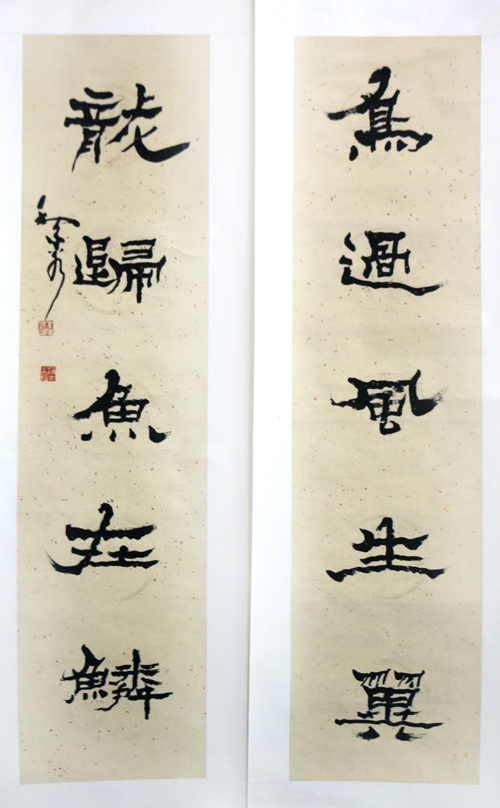 鳥過風生翼
龍歸魚在鱗